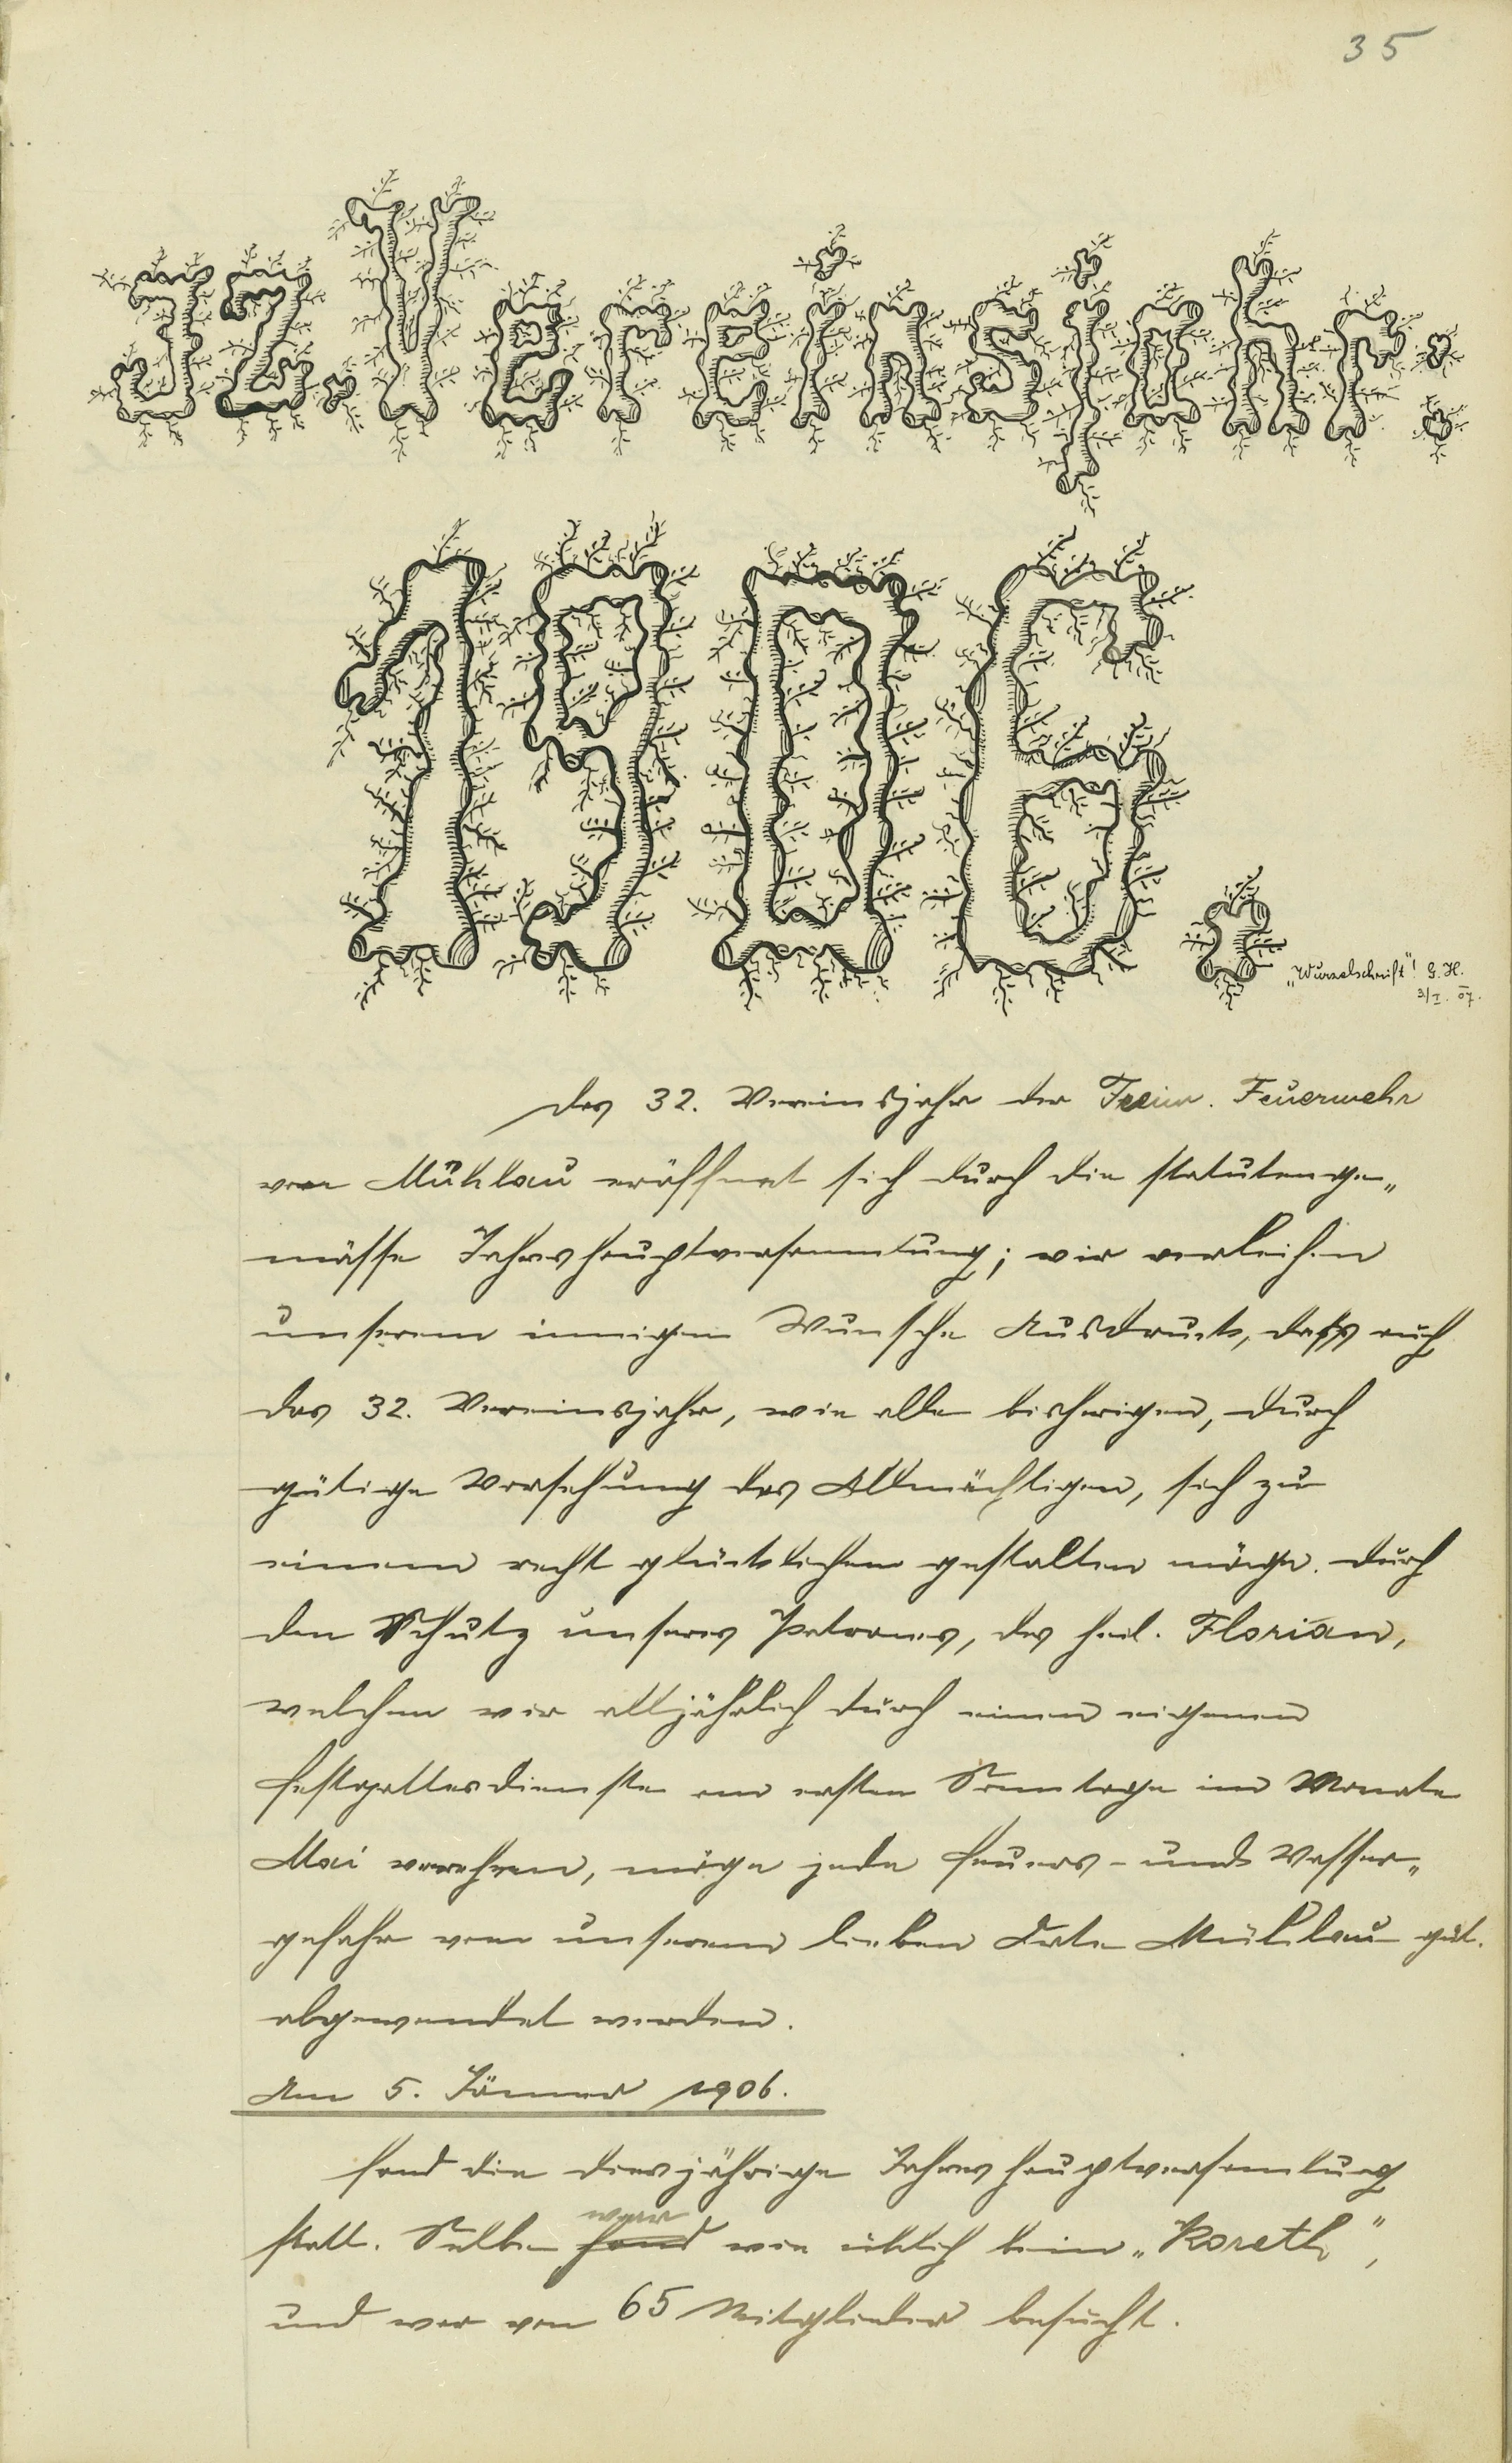 35
32. Vereinsjahr:
1906.
„Wurzelschrift"! G. H.
3/I. 07.
Das 32. Vereinsjahr der Freiw. Feuerwehr
von Mühlau eröffnet sich durch die statutenge„
mässe Jahreshauptversammlung; wir verleihen
unserem innigen Wunsche Ausdruck, dass auch
das 32. Vereinsjahr, wie alle bisherigen, durch
gütige Vorsehung des Allmächtigen, sich zu
einem recht glücklichen gestalten möge. Durch
den Schutz unseres Patrones, des heil. Florian,
welchen wir alljährlich durch einen eigenen
Festgottesdienste am ersten Sonntage im Monate
Mai verehren, möge jede Feuers- und Wasser„
gefahr von unserem lieben Orte Mühlau güt.
abgewendet werden.
Am 5. Jänner 1906.
fand die diesjährige Jahreshauptversamlung
statt. Selbe fand war wie üblich beim „Koreth",
und war von 65 Mitglieder besucht.